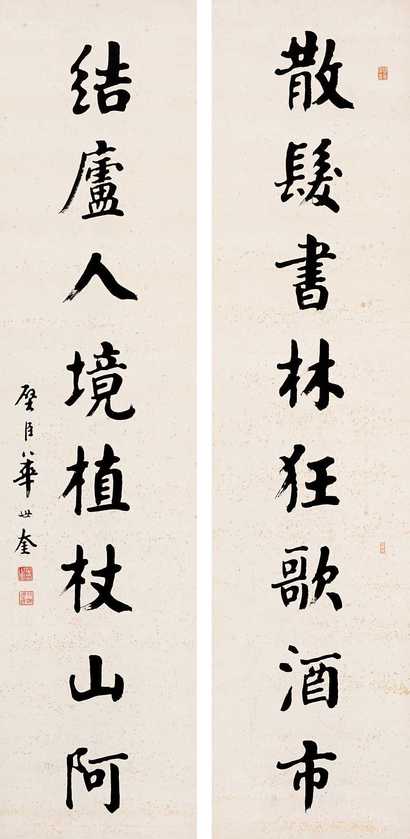 散髮書林狂歌酒市
結廬人境植杖山阿
璧臣華世奎